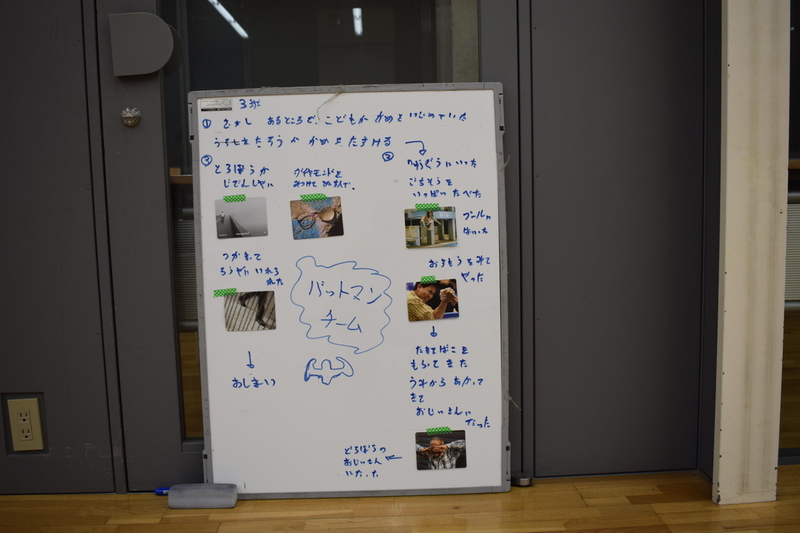 3班
① むかし あるところで、こどもが かめをいじめていた
うらしまたろうが かめをたすける
②
りゅうぐうにいった
ごちそうを
いっぱい たべた
プールに
はいった
おすもうを みて
やった
たまてばこを
もらってきた
うみから あがって
きて
おじいさんに
なった
どろぼうの
おじいさん
いた
③
どろぼうが
じてんしゃに
ダイヤモンドを
みつけて ぬすんで、
つかまって
ろうやに いれら
れた
おしまい
バットマン
チーム